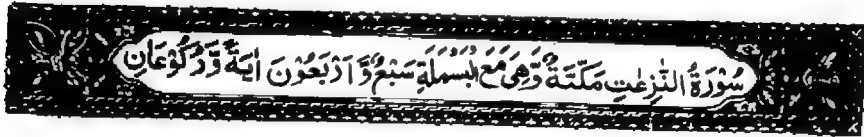 سُوْرَةُ النّٰزِعٰتِ مَكِّيَّةٌ وَّهِيَ مَعَ الْبَسْمَلَةِ سَبْعٌ وَّاَرْبَعُوْنَ اٰيَةً وَّرُكُوْعَانِ